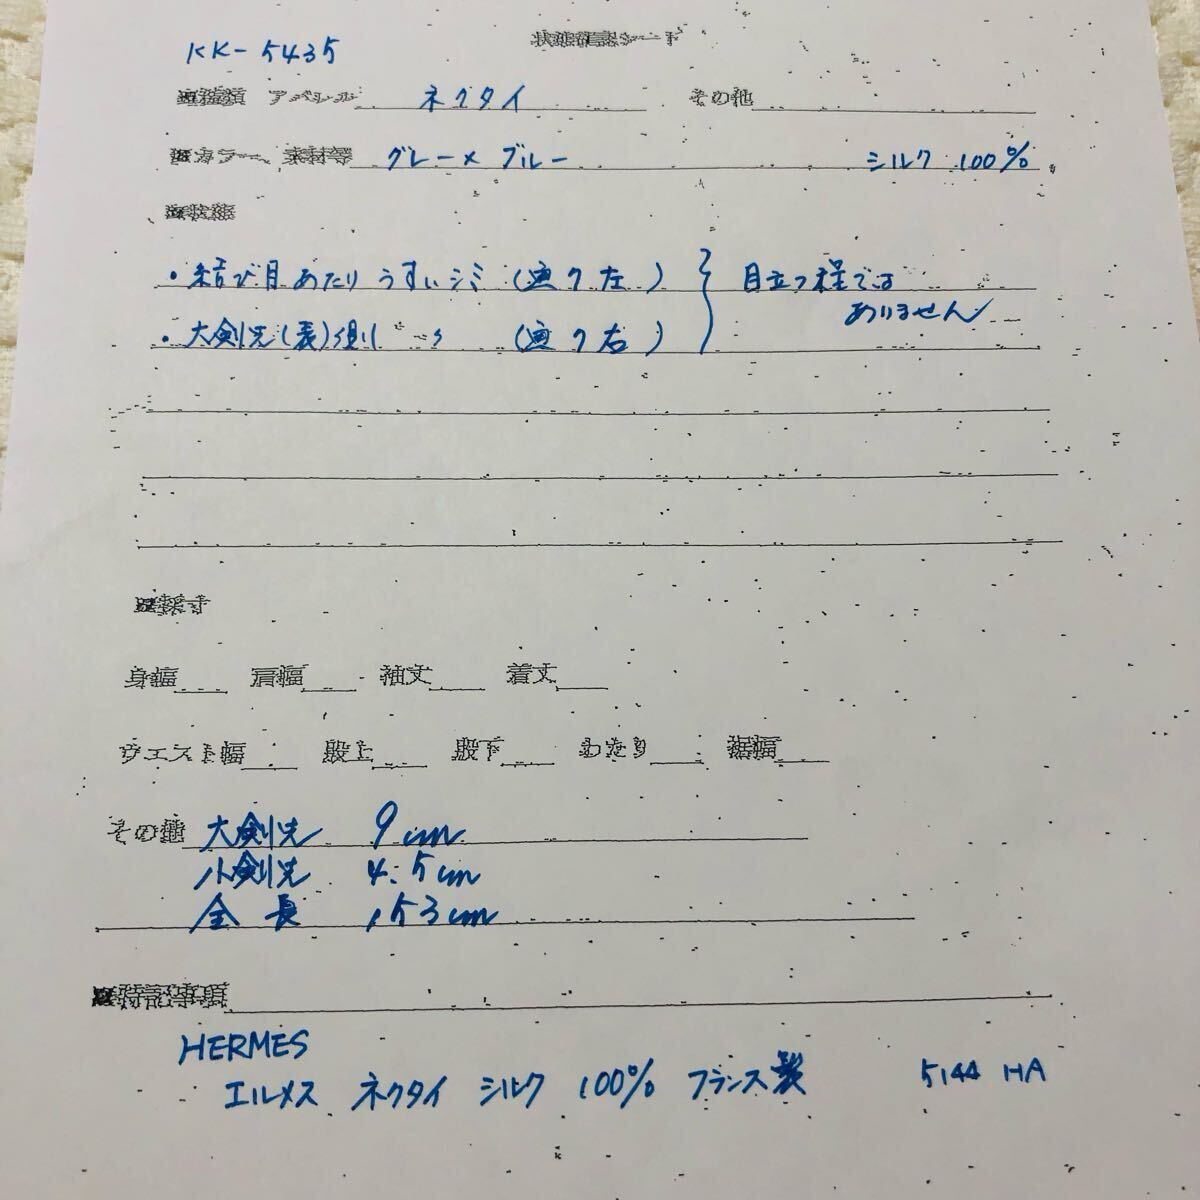 KK-5435
状態確認シート
※種類 アパレル ネクタイ その他
※カラー、素材等 グレー×ブルー シルク 100%
※状態
・結び目あたり うすいシミ (画ウ左) 目立つ程では
ありません
・大剣先(表) (画ウ右)
※採寸
身幅 肩幅 袖丈 着丈
ウエスト幅 股上 股下 わたり 裾幅
その他 大剣先 9cm
小剣先 4.5cm
全長 153cm
※特記事項
HERMES
エルメス ネクタイ シルク 100% フランス製 5144 HA